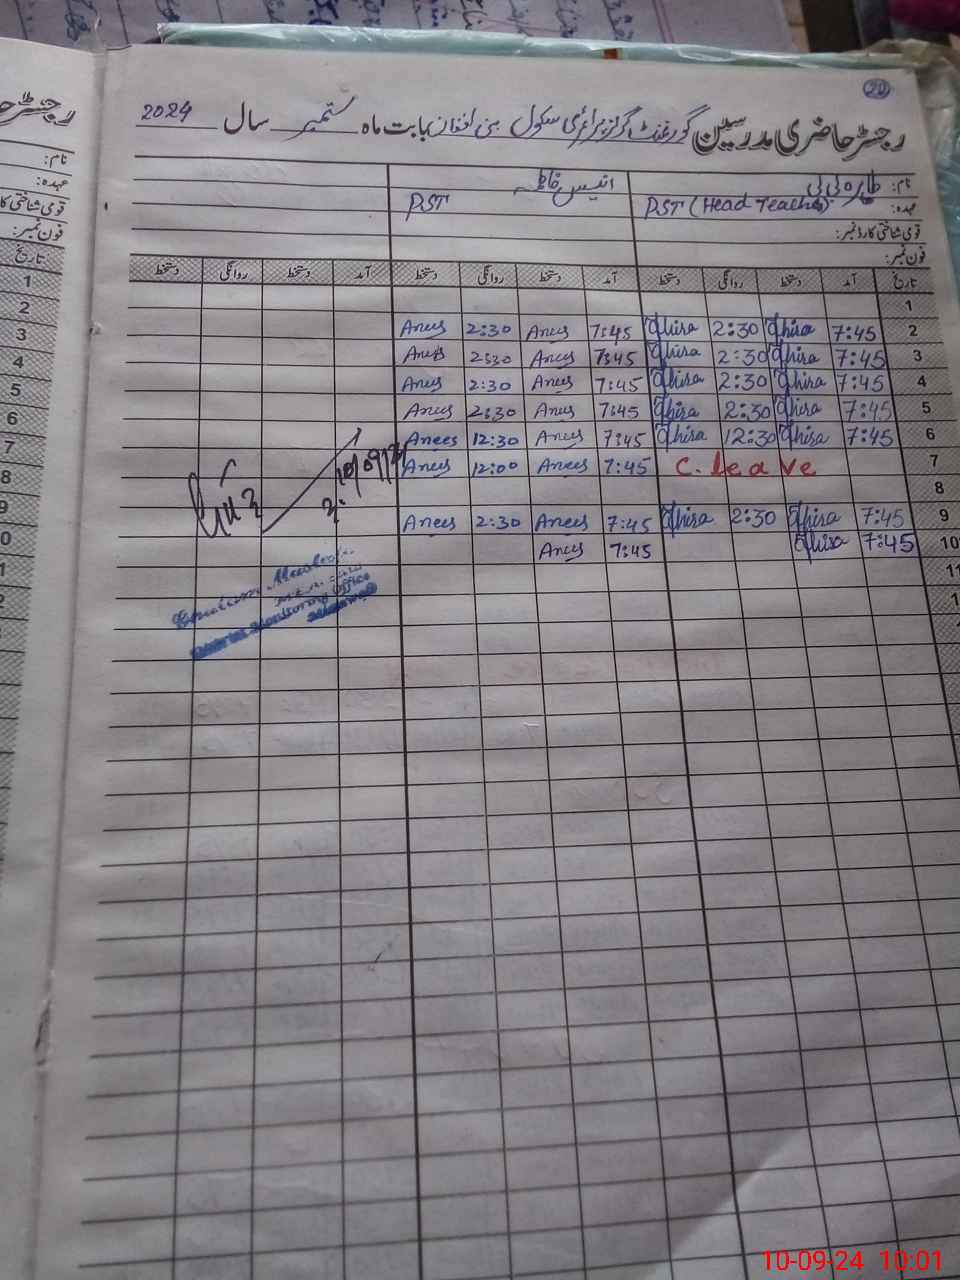 20
رجسٹر حاضری مدرسین گورنمنٹ گرلز پرائمری سکول بنی افغان بابت ماہ ستمبر سال 2024
نام: طاہرہ بی بی انیس فاطمہ
عہدہ: PST (Head Teacher) PST
قومی شناختی کارڈ نمبر:
فون نمبر:
تاریخ آمد دستخط روانگی دستخط آمد دستخط روانگی دستخط آمد دستخط روانگی دستخط
1
Anees 2:30 Anees 7:45 Thira 2:30 Thira 7:45 2
Anees 2:30 Anees 7:45 Thira 2:30 Thira 7:45 3
Anees 2:30 Anees 7:45 Thira 2:30 Thira 7:45 4
Anees 2:30 Anees 7:45 Thira 2:30 Thira 7:45 5
Anees 12:30 Anees 7:45 Thira 12:30 Thira 7:45 6
Anees 12:00 Anees 7:45 C. leave 7
8
Anees 2:30 Anees 7:45 Thira 2:30 Thira 7:45 9
Anees 7:45 Thira 7:45 10
11
10/09/24
District Monitoring Office
نام:
عہدہ:
قومی شناختی کا
فون نمبر:
تاریخ
1
2
3
4
5
6
7
8
9
0
1
2
10-09-24 10:01